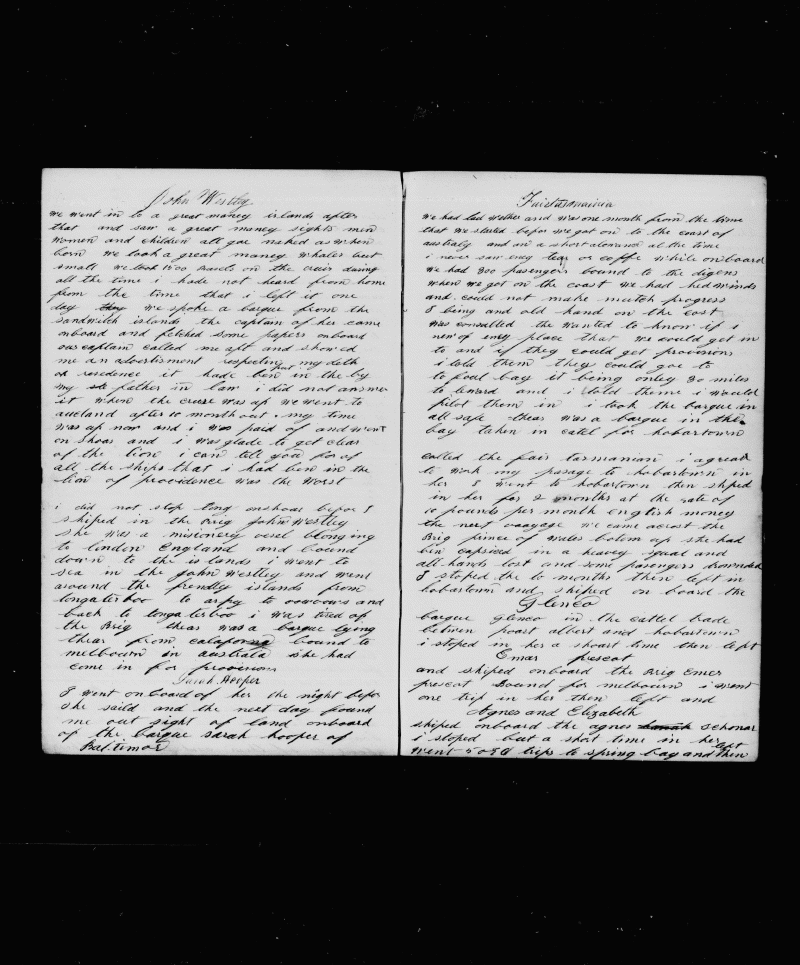 John Westley
we went in to a great maney islands after
that and saw a great maney sights men
women and children all goe naked as when
born we took a great maney whales but
small we took 1500 barels on the cruis during
all the time i hade not heard from home
from the time that i left it one
day they we spoke a barque from the
sandwitch islands the captain of her came
onboard and fetched some papers onboard
our captain called me aft and showed
me an advertisment respecting my deth
or residence it hade ben put in the by
my ste father in law i did not answer
it when the cruse was up we went to
aucland after 10 month out my time
was up now and i was paid of and went
on shore and i was glade to get clear
of the lion i can tell you for of
all the ships that i had ben in the
lion of providence was the worst
i did not stop long onshore befor I
shiped in the brig John Westley
she was a misionery vesel belonging
to london England and bound
down to the islands i went to
sea in the John Westley and went
around the frendly islands from
tongaterboo to and
back to tongaterboo i was tired of
the Brig thear was a barque lying
thear from calafornia bound to
melbourn in australia she had
come in for provisions
Sarah Hooper
I went onboard of her the night befor
she saild and the next day found
me out sight of land onboard
of the barque sarah hooper of
Baltimor
Fairtasmainia
we had bad wether and was one month from the time
that we started befor we got on to the coast of
australy and on a short alowance at the time
i never saw eney tea or coffe while onboard
we had 300 pasengers bound to the digens
when we got on the coast we had hed winds
and could not make mutch progress
I being and old hand on the cost
was consulted the wanted to know if i
new of eney place that we could get in
to and if they could get provisions
i told them they could goe to
to foul bay it being onley 30 miles
to leward and i told them i would
pilot them in i took the barque in
all safe thear was a barque in the
bay taken in catel for hobartown
called the fair tasmanian i agread
to work my pasage to hobartown in
her I went to hobartown then shiped
in her for 2 months at the rate of
10 pounds per month english money
the next vaoyage we came acrost the
Brig prince of wales botom up she had
ben capsized in a heavey squal and
all hands lost and some pasengers drownded
I stoped the 10 months then left in
hobartown and shiped on board the
Glenco
barque glenco in the cattel trade
betwen poart albert and hobartown
i stoped in her a shoart time then left
Emer prescot
and shiped onboard the Brig Emer
prescot bound for melbourn i went
one trip in her then left and
Agnes and Elizabeth
shiped onboard the agnes schonar
i stoped but a short time in her
went 5 or 6 trips to spring bay and left then